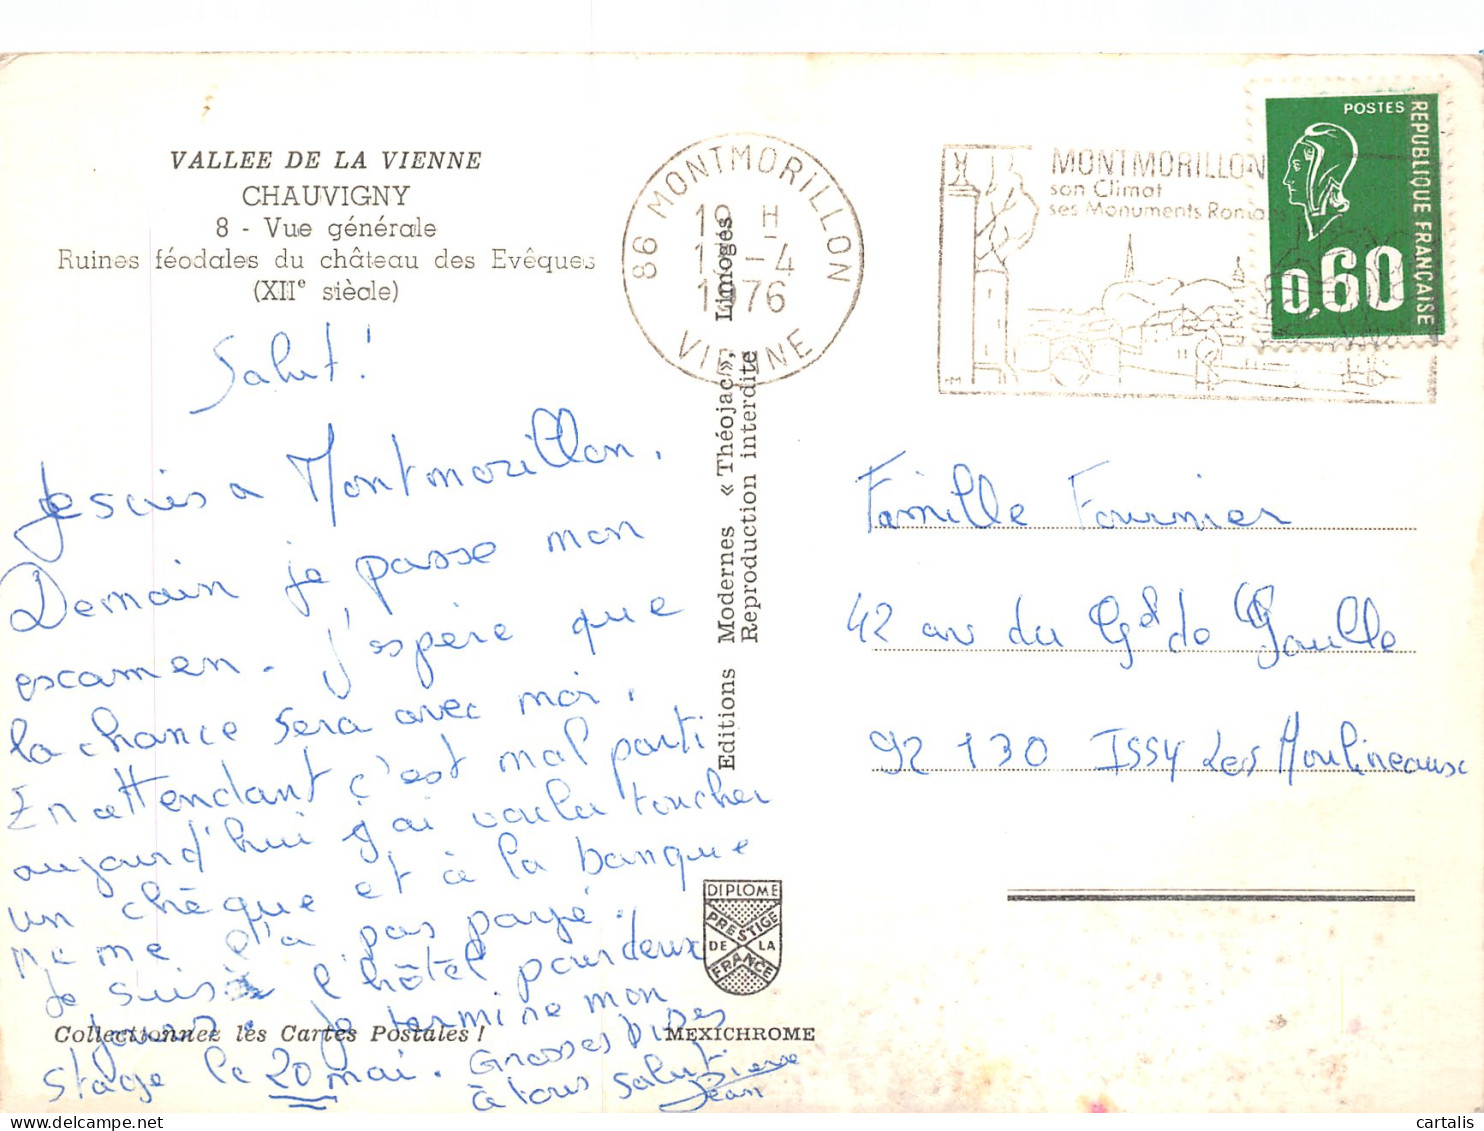 VALLEE DE LA VIENNE
CHAUVIGNY
8 - Vue générale
Ruines féodales du château des Evêques
(XIIe siècle)
Salut !
Je suis a Montmorillon.
Demain je passe mon
examen. J'espère que
la chance sera avec moi.
En attendant c'est mal parti
aujourd'hui j'ai voulu toucher
un chèque et à la banque
ne me l'a pas payé.
Je suis à l'hôtel pour deux
jours. Je termine mon
stage le 20 mai. Grosses bises
à tous salut Pierre
Jean
Collectionnez les Cartes Postales !
Editions Modernes « Théojac », Limoges
Reproduction interdite
DIPLOME
PRESTIGE
DE LA
FRANCE
MEXICHROME
86 MONTMORILLON
19 H
-4
1976
VIENNE
MONTMORILLON
son Climat
ses Monuments Romans
POSTES
REPUBLIQUE FRANÇAISE
0,60
Famille Fournier
42 av du Gal de Gaulle
92 130 ISSY Les Moulineaux
cartalis